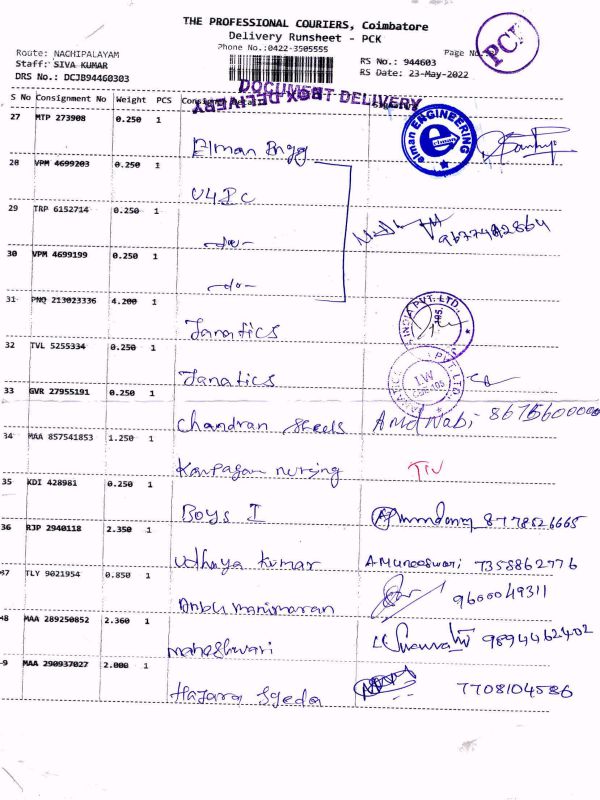 THE PROFESSIONAL COURIERS, Coimbatore
Delivery Runsheet - PCK
Phone No.:0422-3505555
Page No.:
PCK
Route: NACHIPALAYAM
Staff: SIVA KUMAR
DRS No.: DCJB94460303
RS No.: 944603
RS Date: 23-May-2022
DOCUMENT DELIVERY
BOX DELIVERY
S No Consignment No Weight PCS
27 MTP 273908 0.250 1
Elman Engg
elman ENGINEERING
elman
28 VPM 4699203 0.250 1
29 TRP 6152714 0.250 1
-do-
30 VPM 4699199 0.250 1
-do-
31 PNQ 213023336 4.200 1
Janatics
INDIA PVT. LTD.,
32 TVL 5255334 0.250 1
Janatics
33 GVR 27955191 0.250 1
Chandran Steels
34 MAA 857541853 1.250 1
Karpagam nursing
35 KDI 428981 0.250 1
Boys I 8778526665
36 RJP 2940118 2.350 1
Udhaya kumar A Muneeswari 7358862776
37 TLY 9021954 0.850 1
Anbu manimaran 9600049311
48 MAA 289250852 2.360 1
maheshwari 9894462402
9 MAA 290937027 2.000 1
Hajara Syeda 7708104586